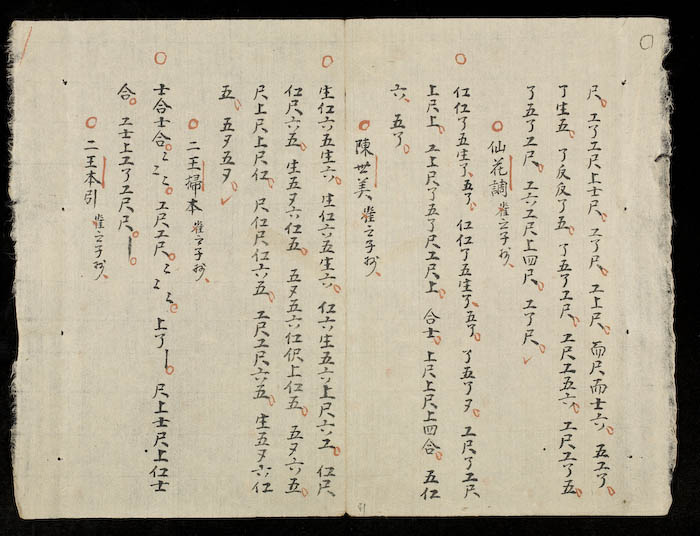 尺。工了工尺上士尺。工了尺。工上尺。而尺而士六。五工了
了生五。了反反了五。了五了工尺。工尺工五六。工尺工了五
了五了工尺。工六工尺上四尺。工了尺。
○仙花調 崔之子抄
○仜仜了五生了。五了。仜仜了五生了。五了。了五了夕。工尺了工尺
上尺上。工上尺了五了尺工尺上。合士。上尺上尺上四合。五仜
六。五了。
○陳世美 崔之子抄
○生仜六五生六。生仜六五生六。仜六生五六上尺六工。仜尺
仜尺六五。生五夕六仜五。五夕五六仜伬上仜五。五夕六五。
尺上尺上尺仜。尺仜尺仜六五。工尺工尺六五。生五夕六仜
五。五夕五夕
○二王掃本 崔之子抄
○士合士合。ミミ。工尺工尺。ミミ。上了丨。尺上士尺上仜士
合。工士上工了工尺尺。丨。
○二王本引 崔之子抄